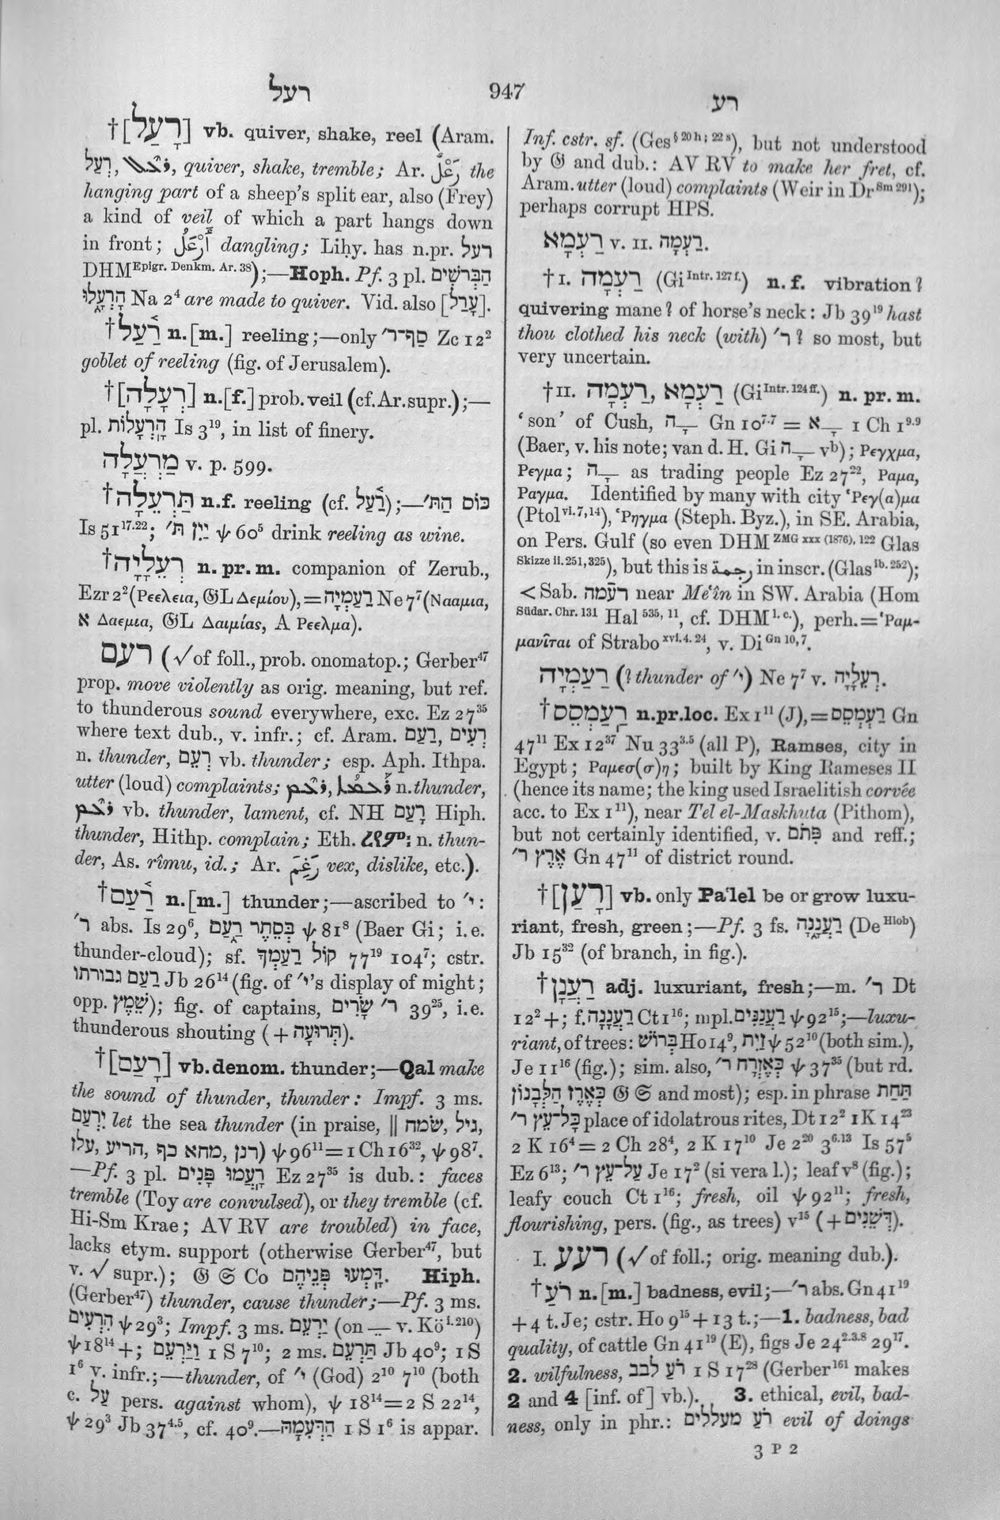 רעל
947
רע
†[רָעַל] vb. quiver, shake, reel (Aram.
quiver, shake, tremble; Ar. the
hanging part of a sheep's split ear, also (Frey)
a kind of veil of which a part hangs down
in front; dangling; Liḥy. has n.pr. רעל
DHM Epigr. Denkm. Ar. 38);—Hoph. Pf. 3 pl. הַבְּרֹשִׁים
הָרְעָלוּ Na 2⁴ are made to quiver. Vid. also
†רַ֫עַל n.[m.] reeling;—only סַף־ר׳ Zc 12²
goblet of reeling (fig. of Jerusalem).
†[רְעָלָה] n.[f.] prob. veil (cf. Ar. supr.);—
pl. הָרְעָלוֹת Is 3¹⁹, in list of finery.
מַרְעֲלָה v. p. 599.
†תַּרְעֵלָה n.f. reeling (cf. רַ֫עַל);—כּוֹס הַתּ׳
Is 51¹⁷·²²; יַיִן תּ׳ ψ 60⁵ drink reeling as wine.
†רְעֵלָיָה n.pr.m. companion of Zerub.,
Ezr 2² (Ρεελεια, 𝔊L Δεμίου), = רַעַמְיָה Ne 7⁷ (Νααμια,
א Δαεμια, 𝔊L Δαιμίας, A Ρεελμα).
רעם (√ of foll., prob. onomatop.; Gerber⁴⁷
prop. move violently as orig. meaning, but ref.
to thunderous sound everywhere, exc. Ez 27³⁵
where text dub., v. infr.; cf. Aram.
n. thunder, vb. thunder; esp. Aph. Ithpa.
utter (loud) complaints; n. thunder,
vb. thunder, lament, cf. NH רָעַם Hiph.
thunder, Hithp. complain; Eth. n. thun-
der, As. rîmu, id.; Ar. vex, dislike, etc.).
†רַ֫עַם n.[m.] thunder;—ascribed to י׳:
ר׳ abs. Is 29⁶, בְּסֵתֶר רַעַם ψ 81⁸ (Baer Gi; i.e.
thunder-cloud); sf. קוֹל רַעַמְךָ 77¹⁹ 104⁷; cstr.
רַעַם גבורתו Jb 26¹⁴ (fig. of י׳'s display of might;
opp. שֶׁמֶץ); fig. of captains, ר׳ שָׂרִים 39²⁵, i.e.
thunderous shouting (+ תְּרוּעָה).
†[רָעַם] vb. denom. thunder;—Qal make
the sound of thunder, thunder: Impf. 3 ms.
יִרְעַם let the sea thunder (in praise, ‖ שׂמח, גיל,
רנן, מחא כף, הריע, עלז) ψ 96¹¹ = 1 Ch 16³², ψ 98⁷.
—Pf. 3 pl. רָעֲמוּ פָּנִים Ez 27³⁵ is dub.: faces
tremble (Toy are convulsed), or they tremble (cf.
Hi-Sm Krae; AV RV are troubled) in face,
lacks etym. support (otherwise Gerber⁴⁷, but
v. √ supr.); 𝔊 𝔖 Co דָּמְעוּ פְּנֵיהֶם. Hiph.
(Gerber⁴⁷) thunder, cause thunder;—Pf. 3 ms.
הִרְעִים ψ 29³; Impf. 3 ms. יַרְעֵם (on v. Kö I. 210)
ψ 18¹⁴ +; וַיַּרְעֵם 1 S 7¹⁰; 2 ms. תַּרְעֵם Jb 40⁹; 1 S
1⁶ v. infr.;—thunder, of י׳ (God) 2¹⁰ 7¹⁰ (both
c. עַל pers. against whom), ψ 18¹⁴ = 2 S 22¹⁴,
ψ 29³ Jb 37⁴·⁵, cf. 40⁹.—הַרְּעִמָהּ 1 S 1⁶ is appar.
Inf. cstr. sf. (Ges § 20 h; 22 s), but not understood
by 𝔊 and dub.: AV RV to make her fret, cf.
Aram. utter (loud) complaints (Weir in Dr Sm 291);
perhaps corrupt HPS.
רַעְמָא v. II. רַעְמָה.
†I. רַעְמָה (Gi Intr. 127 f.) n.f. vibration?
quivering mane? of horse's neck: Jb 39¹⁹ hast
thou clothed his neck (with) ר׳? so most, but
very uncertain.
†II. רַעְמָה, רַעְמָא (Gi Intr. 124 ff.) n.pr.m.
'son' of Cush, Gn 10⁷·⁷ = 1 Ch 1⁹·⁹
(Baer, v. his note; van d. H. Gi vᵇ); Ρεγχμα,
Ρεγμα; as trading people Ez 27²², Ραμα,
Ραγμα. Identified by many with city ʽΡεγ(α)μα
(Ptol vi. 7, 14), ʽΡηγμα (Steph. Byz.), in SE. Arabia,
on Pers. Gulf (so even DHM ZMG xxx (1876), 122 Glas
Skizze ii. 251, 325), but this is in inscr. (Glas ib. 252);
< Sab. רעמה near Me'în in SW. Arabia (Hom
Südar. Chr. 131 Hal 535, 11, cf. DHM l. c.), perh. = ʽΡαμ-
μανῖται of Strabo xvi. 4. 24, v. Di Gn 10, 7.
רַעַמְיָה (? thunder of י׳) Ne 7⁷ v. רְעֵלָיָה.
†רַעְמְסֵס n.pr.loc. Ex 1¹¹ (J), = רַעְמְסֵס Gn
47¹¹ Ex 12³⁷ Nu 33³·⁵ (all P), Ramses, city in
Egypt; Ραμεσ(σ)η; built by King Rameses II
(hence its name; the king used Israelitish corvée
acc. to Ex 1¹¹), near Tel el-Maskhuta (Pithom),
but not certainly identified, v. פִּתֹם and reff.;
אֶרֶץ ר׳ Gn 47¹¹ of district round.
†[רָעַן] vb. only Pa'lel be or grow luxu-
riant, fresh, green;—Pf. 3 fs. רַעֲנָנָה (De Hiob)
Jb 15³² (of branch, in fig.).
†רַעֲנָן adj. luxuriant, fresh;—m. ר׳ Dt
12² +; f. רַעֲנָנָה Ct 1¹⁶; mpl. רַעֲנַנִּים ψ 92¹⁵;—luxu-
riant, of trees: בְּרוֹשׁ Ho 14⁹, זַיִת ψ 52¹⁰ (both sim.),
Je 11¹⁶ (fig.); sim. also, כְּאֶזְרָח ר׳ ψ 37³⁵ (but rd.
כְּאֶרֶז הַלְּבָנוֹן 𝔊 𝔖 and most); esp. in phrase תַּחַת
כָּל־עֵץ ר׳ place of idolatrous rites, Dt 12² 1 K 14²³
2 K 16⁴ = 2 Ch 28⁴, 2 K 17¹⁰ Je 2²⁰ 3⁶·¹³ Is 57⁵
Ez 6¹³; עַל־עֵץ ר׳ Je 17² (si vera l.); leaf v⁸ (fig.);
leafy couch Ct 1¹⁶; fresh, oil ψ 92¹¹; fresh,
flourishing, pers. (fig., as trees) v¹⁵ (+ דְּשֵׁנִים).
I. רעע (√ of foll.; orig. meaning dub.).
†רֹעַ n.[m.] badness, evil;—ר׳ abs. Gn 41¹⁹
+ 4 t. Je; cstr. Ho 9¹⁵ + 13 t.;—1. badness, bad
quality, of cattle Gn 41¹⁹ (E), figs Je 24²·³·⁸ 29¹⁷.
2. wilfulness, רֹעַ לבב 1 S 17²⁸ (Gerber¹⁶¹ makes
2 and 4 [inf. of] vb.). 3. ethical, evil, bad-
ness, only in phr.: רֹעַ מעללים evil of doings
3 P 2